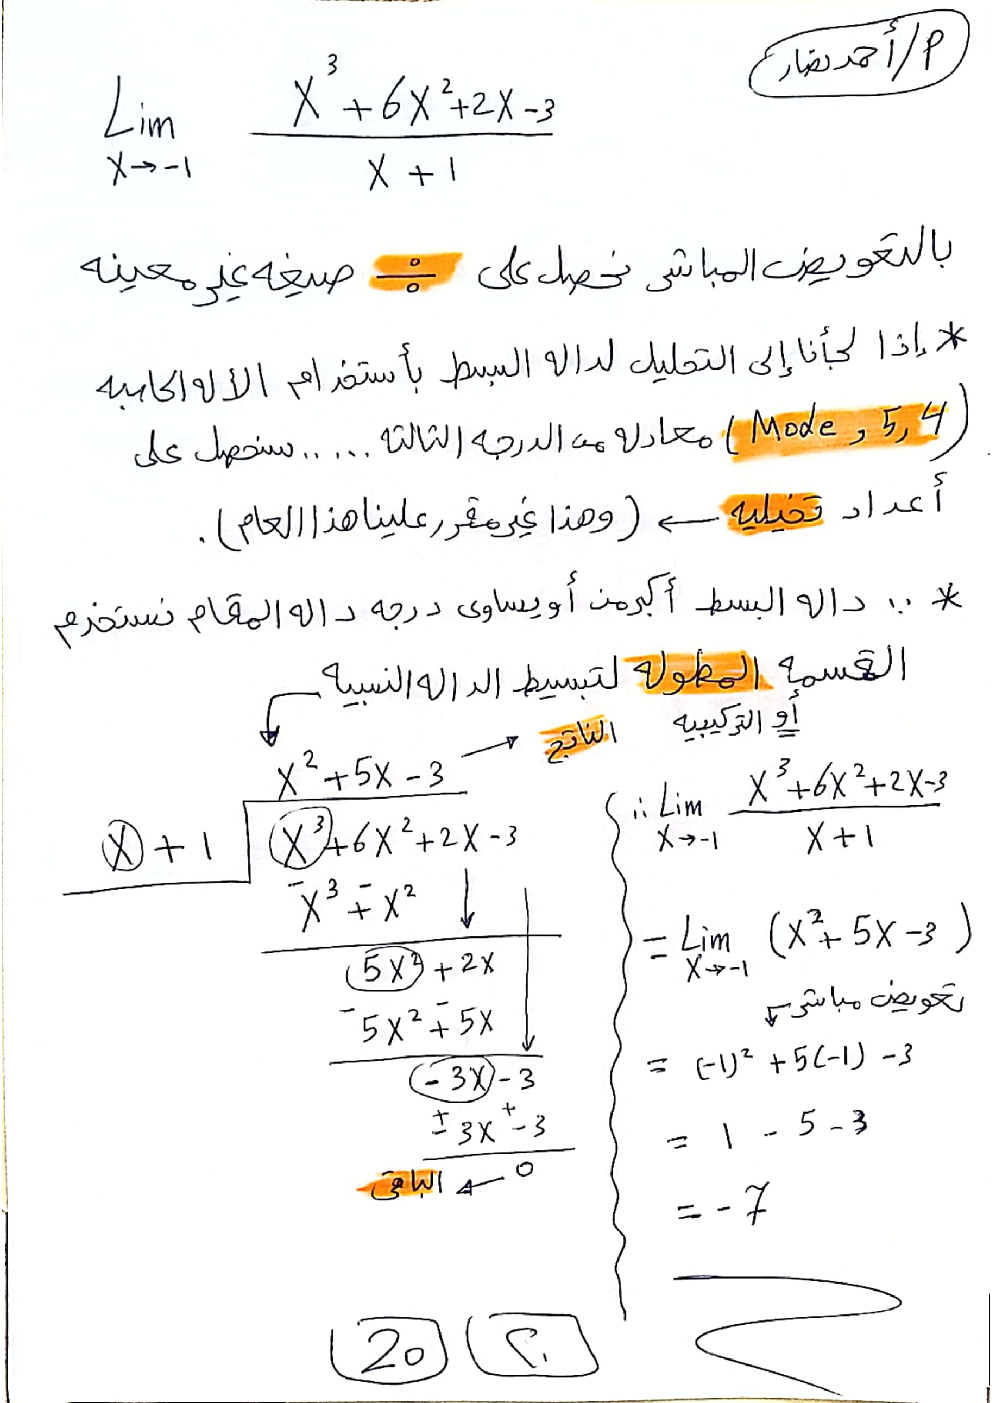 م/أحمد نضار
Lim X³ + 6X² + 2X - 3
X → -1 X + 1
بالتعويض المباشر نحصل على 0/0 صيغه غير معينه
* إذا لجأنا إلى التحليل لداله البسط بأستخدام الأله الحاسبه
(Mode, 5, 4) معادله من الدرجه الثالثه ..... سنحصل على
أعداد تخيليه ← (وهذا غير مقرر علينا هذا العام).
* ∵ داله البسط أكبر من أو يساوى درجه داله المقام نستخدم
القسمه المطوله لتبسيط الداله النسبيه
أو التركيبيه
X² + 5X - 3 → الناتج
X + 1 X³ + 6X² + 2X - 3
-X³ +- X²
5X² + 2X
-5X² +- 5X
-3X - 3
+-3X +-3
0 → الباقى
∴ Lim X³ + 6X² + 2X - 3
X → -1 X + 1
= Lim (X² + 5X - 3)
X → -1
تعويض مباشر
= (-1)² + 5(-1) - 3
= 1 - 5 - 3
= -7
20 ٢٠